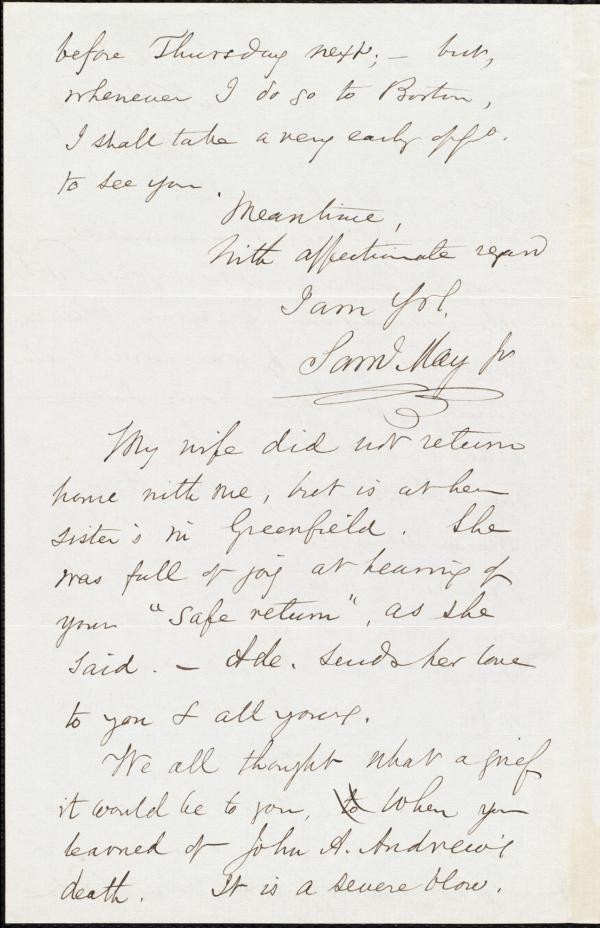 before Thursday next; – but,
whenever I do go to Boston,
I shall take a very early oppo.
to see you.
Meantime,
With affectionate regard
I am Yrs.
Saml. May Jr
My wife did not return
home with me, but is at her
sister's in Greenfield. She
was full of joy at hearing of
your "safe return", as she
said. – Ade. sends her love
to you & all yours.
We all thought what a grief
it would be to you, to When you
learned of John A. Andrew's
death. It is a severe blow.